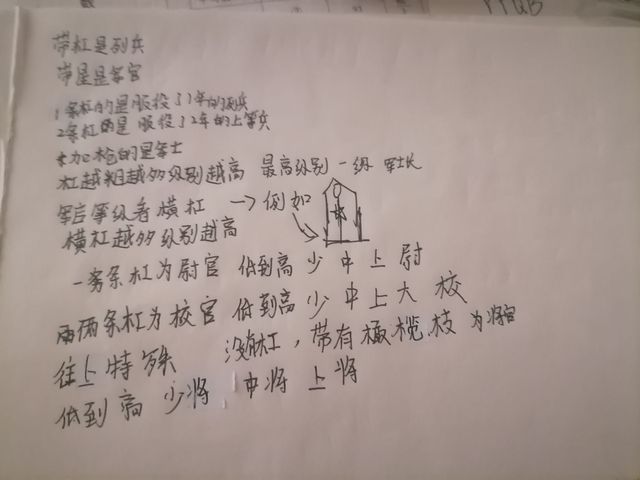 YYQB
带杠是列兵
带星是军官
1条杠的是服役了1年的列兵
2条杠的是 服役了2年的上等兵
加枪的是军士
杠越粗越多级别越高 最高级别 一级 军士长
军官等级看横杠 → 例如
横杠越多级别越高
一条杠为尉官 低到高 少 中 上 尉
两条杠为校官 低到高 少 中 上 大 校
往上特殊 没有杠，带有橄榄枝 为将官
低到高 少将 中将 上将